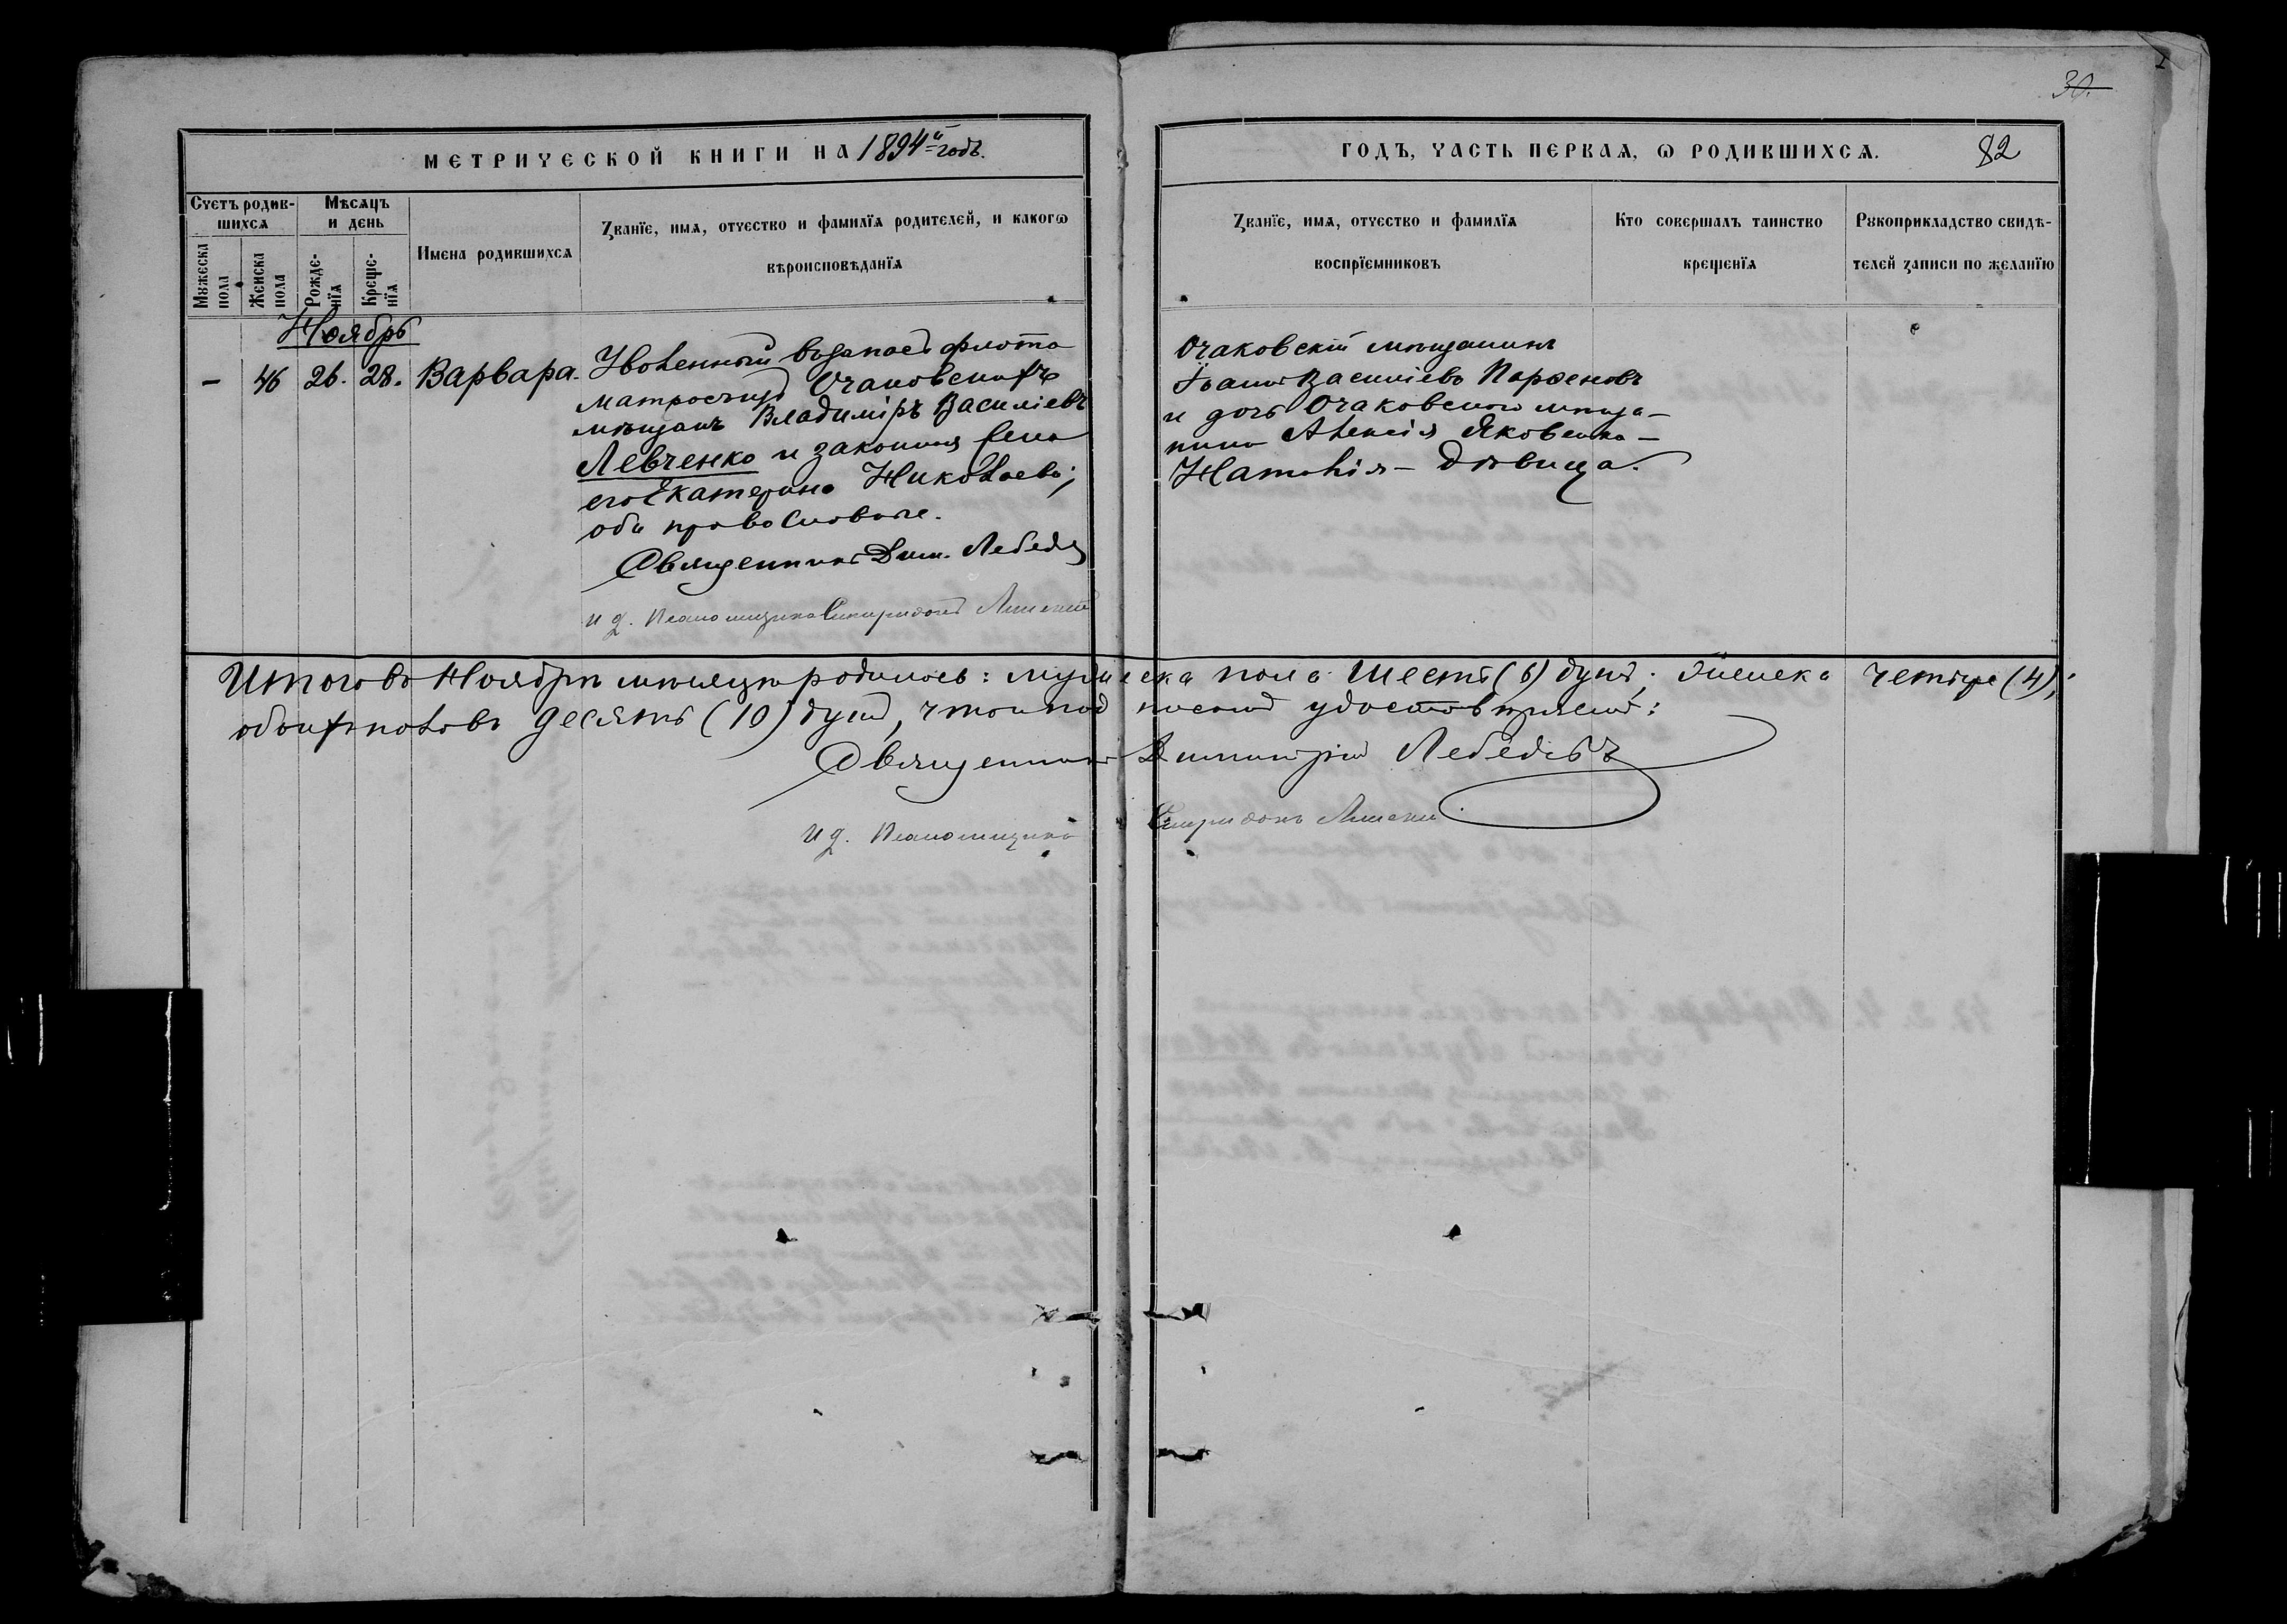 30.
МЕТРИЧЕСКОЙ КНИГИ НА 1894й годъ.
ГОДЪ, ЧАСТЬ ПЕРВАЯ, Ѡ РОДИВШИХСЯ. 82
Счетъ родив-
шихся
Мѣсяцъ
и день
Мужеска
пола
Женска
пола
Рожде-
нїя
Креще-
нїя
Имена родившихся
Званїе, имя, отчество и фамилїя родителей, и какогѡ
вѣроисповѣданїя
Званїе, имя, отчество и фамилїя
воспрїемниковъ
Кто совершалъ таинство
крещенїя
Рукоприкладство свидѣ-
телей записи по желанїю
Ноябрь
- 46 26. 28. Варвара.
Уволенный въ запасъ флота
матросъ изъ Очаковскихъ
мѣщанъ Владиміръ Василіевъ
Левченко и законная жена
его Екатерина Николаева;
оба православные.
Священникъ Дим. Лебедевъ
и д. Псаломщика Спиридонъ
Очаковскій мѣщанинъ
Іоаннъ Василіевъ Парѳеновъ
и дочь Очаковскаго мѣща-
нина Алексія Яковенка -
Наталія - дѣвица.
Итого въ Ноябрѣ мѣсяцѣ родилось: мужеска пола шесть (6) душъ; женска четыре (4);
обоихъ половъ десять (10) душъ, что и подписомъ удостовѣряемъ:
Священникъ Димитрій Лебедевъ
и д. Псаломщика Спиридонъ